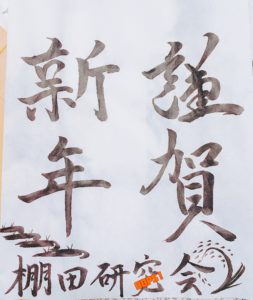 謹賀
新年
棚田研究会